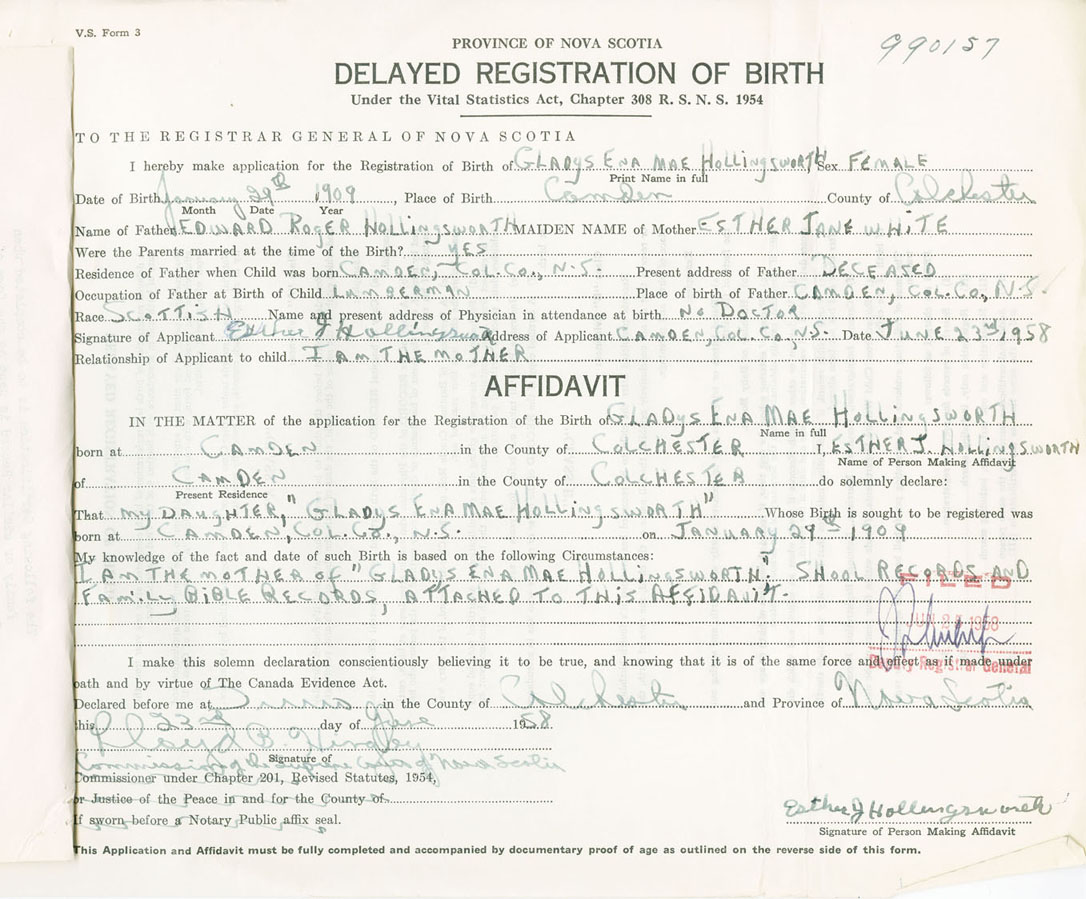 V.S. Form 3
990157
PROVINCE OF NOVA SCOTIA
DELAYED REGISTRATION OF BIRTH
Under the Vital Statistics Act, Chapter 308 R. S. N. S. 1954
TO THE REGISTRAR GENERAL OF NOVA SCOTIA
I hereby make application for the Registration of Birth of GLADYS ENA MAE HOLLINGSWORTH Sex FEMALE
Print Name in full
Date of Birth January 29th 1909, Place of Birth Camden County of Colchester
Month Date Year
Name of Father EDWARD ROGER HOLLINGSWORTH MAIDEN NAME of Mother ESTHER JANE WHITE
Were the Parents married at the time of the Birth? YES
Residence of Father when Child was born CAMDEN, COL. CO., N.S. Present address of Father DECEASED
Occupation of Father at Birth of Child LUMBERMAN Place of birth of Father CAMDEN, COL. CO., N.S.
Race SCOTTISH Name and present address of Physician in attendance at birth NO DOCTOR
Signature of Applicant Esther J Hollingsworth Address of Applicant CAMDEN, COL. CO., N.S. Date JUNE 23rd, 1958
Relationship of Applicant to child I AM THE MOTHER
AFFIDAVIT
IN THE MATTER of the application for the Registration of the Birth of GLADYS ENA MAE HOLLINGSWORTH
Name in full
born at CAMDEN in the County of COLCHESTER I, ESTHER J. HOLLINGSWORTH
Name of Person Making Affidavit
of CAMDEN in the County of COLCHESTER do solemnly declare:
Present Residence
That MY DAUGHTER, "GLADYS ENA MAE HOLLINGSWORTH" Whose Birth is sought to be registered was
born at CAMDEN, COL. CO., N.S. on JANUARY 29th 1909
My knowledge of the fact and date of such Birth is based on the following Circumstances:
I AM THE MOTHER OF "GLADYS ENA MAE HOLLINGSWORTH". SHOOL RECORDS AND
FAMILY BIBLE RECORDS, ATTACHED TO THIS AFFIDAVIT.
FILED
JUN 2 1958
Deputy Registrar General
I make this solemn declaration conscientiously believing it to be true, and knowing that it is of the same force and effect as if made under
oath and by virtue of The Canada Evidence Act.
Declared before me at in the County of Colchester and Province of Nova Scotia
this 23rd day of June 1958
Lloyd B.
Signature of
Commission of the Supreme Court of Nova Scotia
Commissioner under Chapter 201, Revised Statutes, 1954,
or Justice of the Peace in and for the County of
If sworn before a Notary Public affix seal.
Esther J Hollingsworth
Signature of Person Making Affidavit
This Application and Affidavit must be fully completed and accompanied by documentary proof of age as outlined on the reverse side of this form.